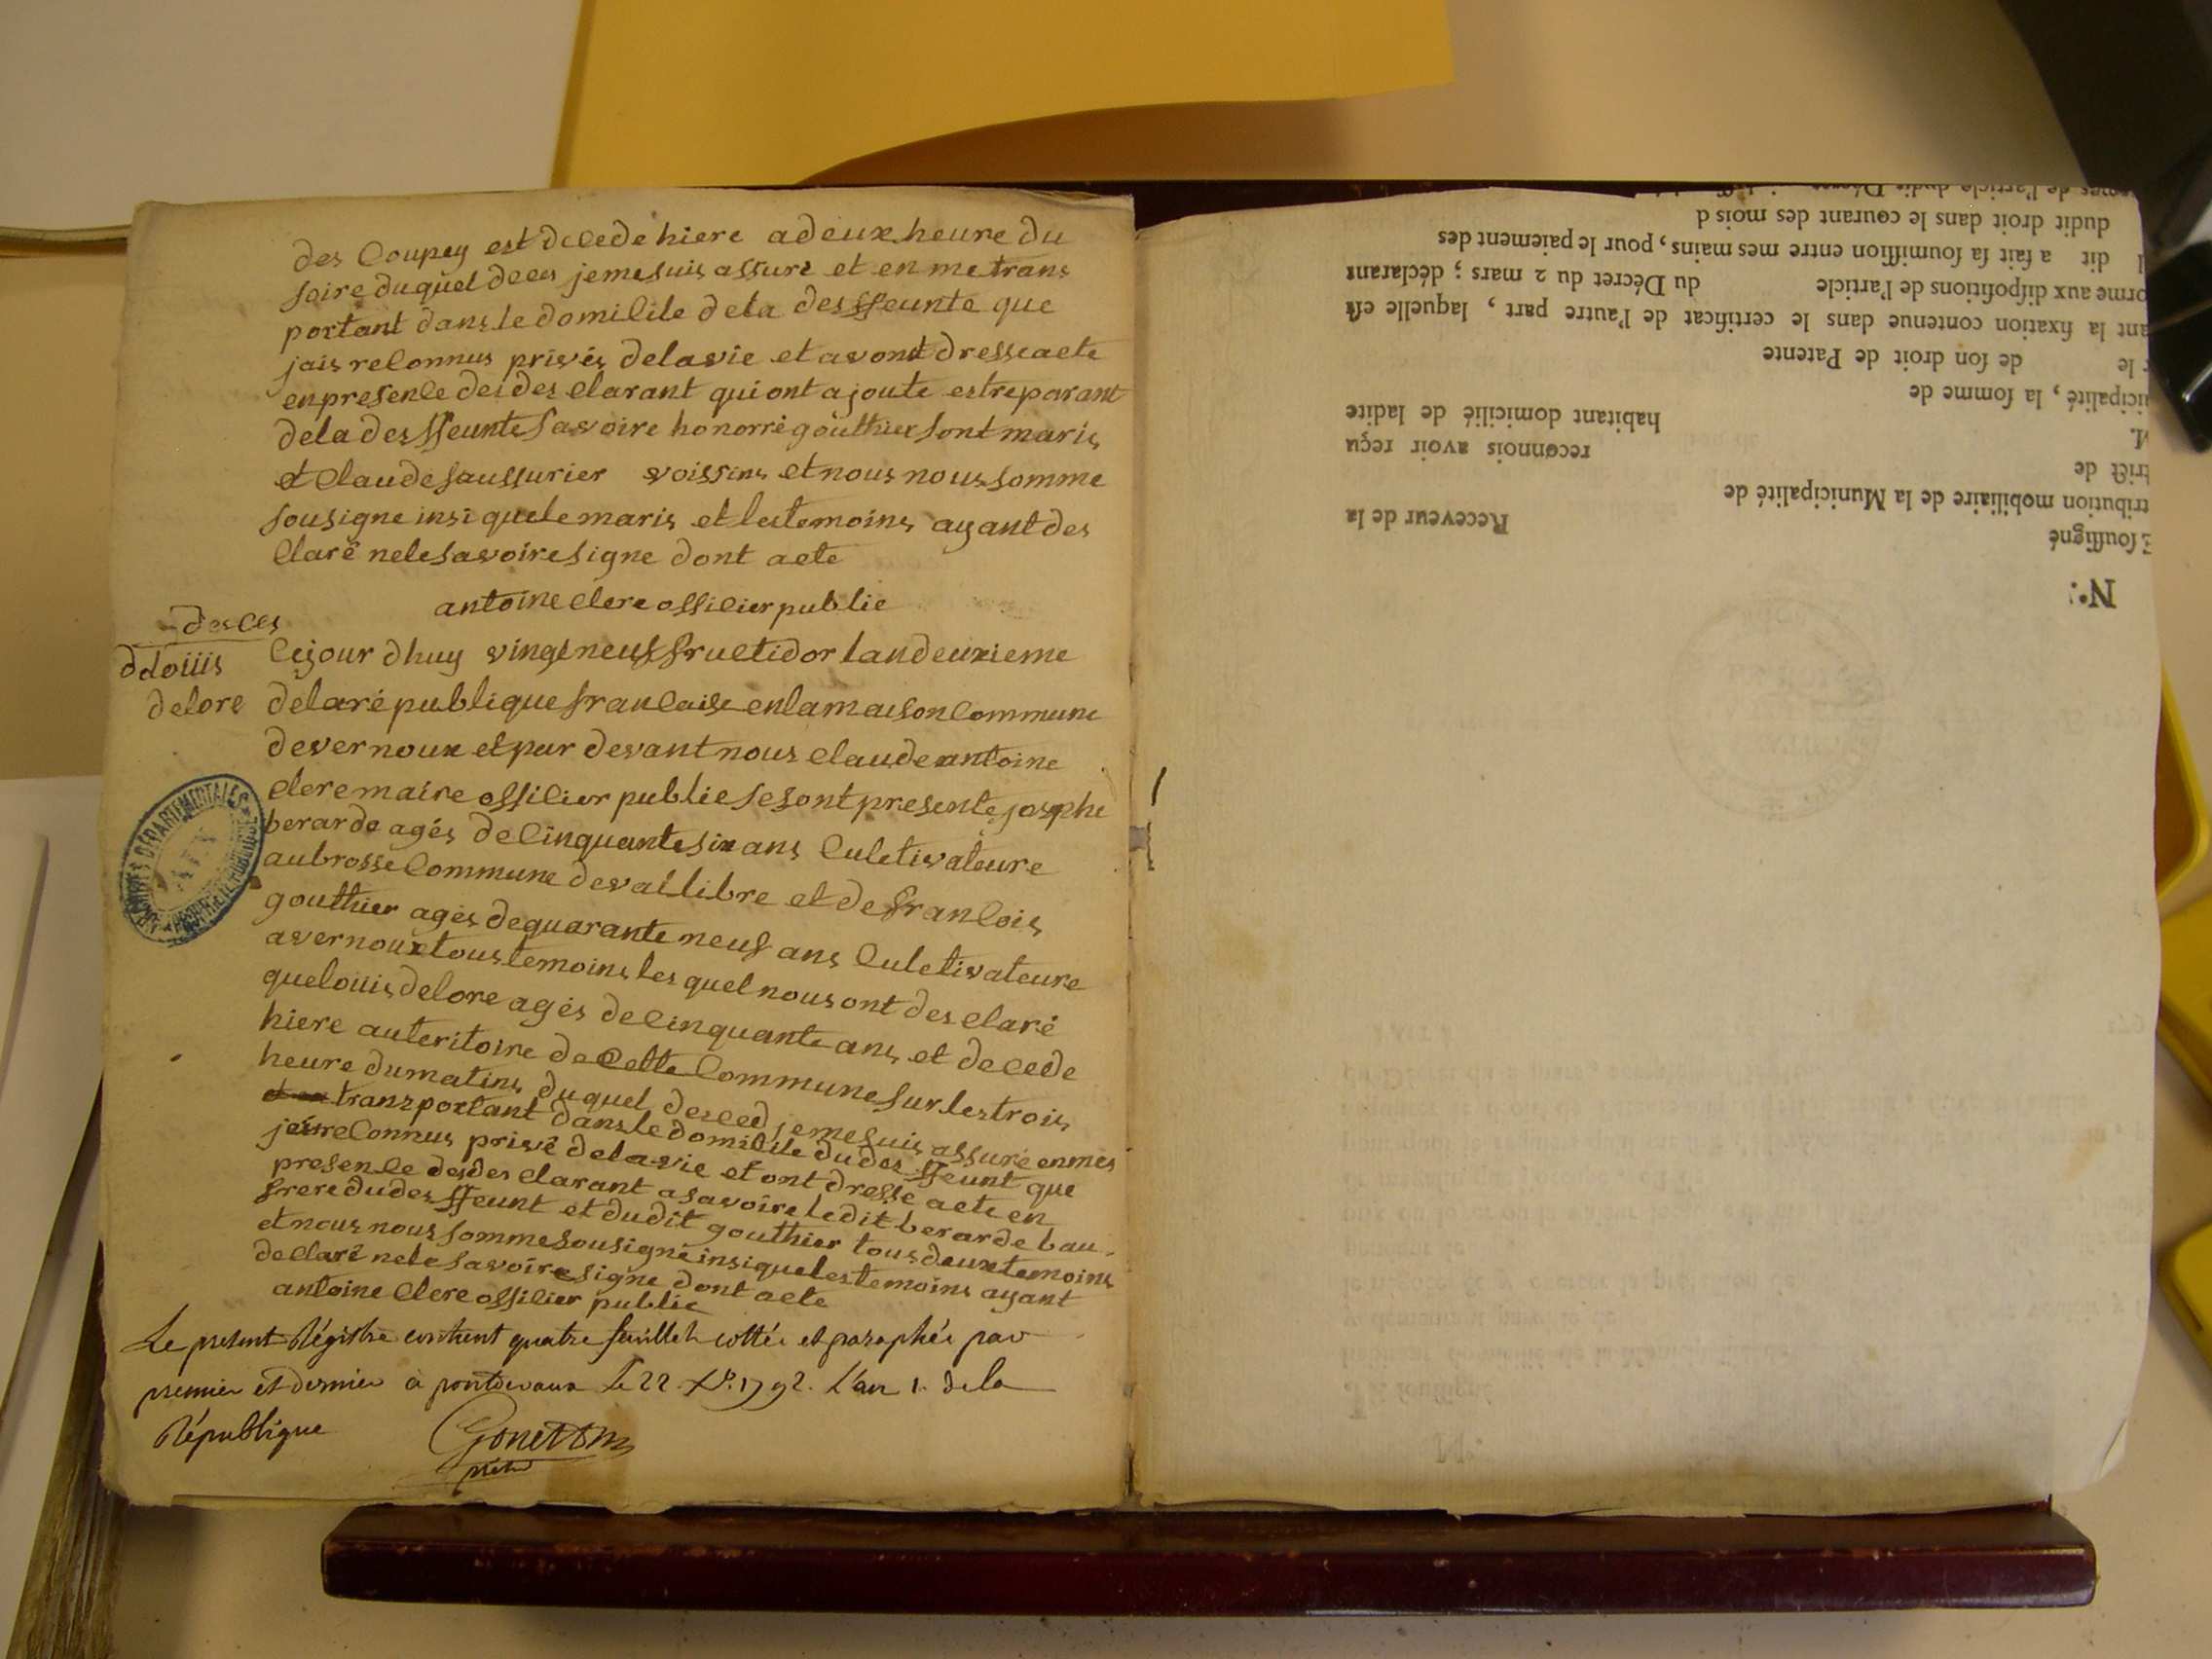 des Coupey est decede hiere a deux heure du
soire du quel deces je me suis assure et en me trans
portant dans le domilile de la desffeunte que
jais reconnus privés de la vie et avont dresse acte
en presence des des clarant qui ont ajoute estre parant
de la desffeunte savoire honorré gouthier sont maris
et Claude saussurier voissins et nous nous somme
sousigne insi que le maris et les temoins ayant des
claré ne le savoire signe dont acte
antoine clerc officier public
desces
dlouis
delore
Cejour dhuy vingt neuf fructidor lan deuxieme
de la république francaise en la maison Commune
de vernoux et par devant nous claude antoine
clerc maire officier public se sont presente josephe
berarde agés de Cinquante six ans Culetivateure
au brosse Commune de val libre et de francois
gouthier agés de quarante neuf ans Culetivateure
a vernoux tous temoins les quel nous ont des claré
que louis delore agés de cinquante ans et decede
hiere au teritoire de Cette Commune sur les trois
heure du matins du quel desced je me suis assuré en mes
transportant dans le domicile du desffeunt que
jai reconnus privé de la vie et ont dressé acte en
presence des des clarant a savoire le dit berarde bau
frere du desffeunt et du dit gouthier tous deux temoins
et nous nous somme sousigné insi que les temoins ayant
declaré ne le savoire signe dont acte
antoine Clerc officier public
Le present Régistre contient quatre feuillets cottés et paraphés par
premier et dernier a pontdevaux le 22. Xbre. 1792. l'an 1. de la
République
Gonetton
ARCHIVES DÉPARTEMENTALES
AIN
N°.
E soussigné Receveur de la
tribution mobiliaire de la Municipalité de
trict de reconnois avoir reçu
M. habitant domicilié de ladite
nicipalité, la somme de
r le de son droit de Patente
ant la fixation contenue dans le certificat de l'autre part, laquelle est
orme aux dispositions de l'article du Décret du 2 mars ; déclarant
l dit a fait sa soumission entre mes mains, pour le paiement des
dudit droit dans le courant des mois d
de l'article dudit Décret